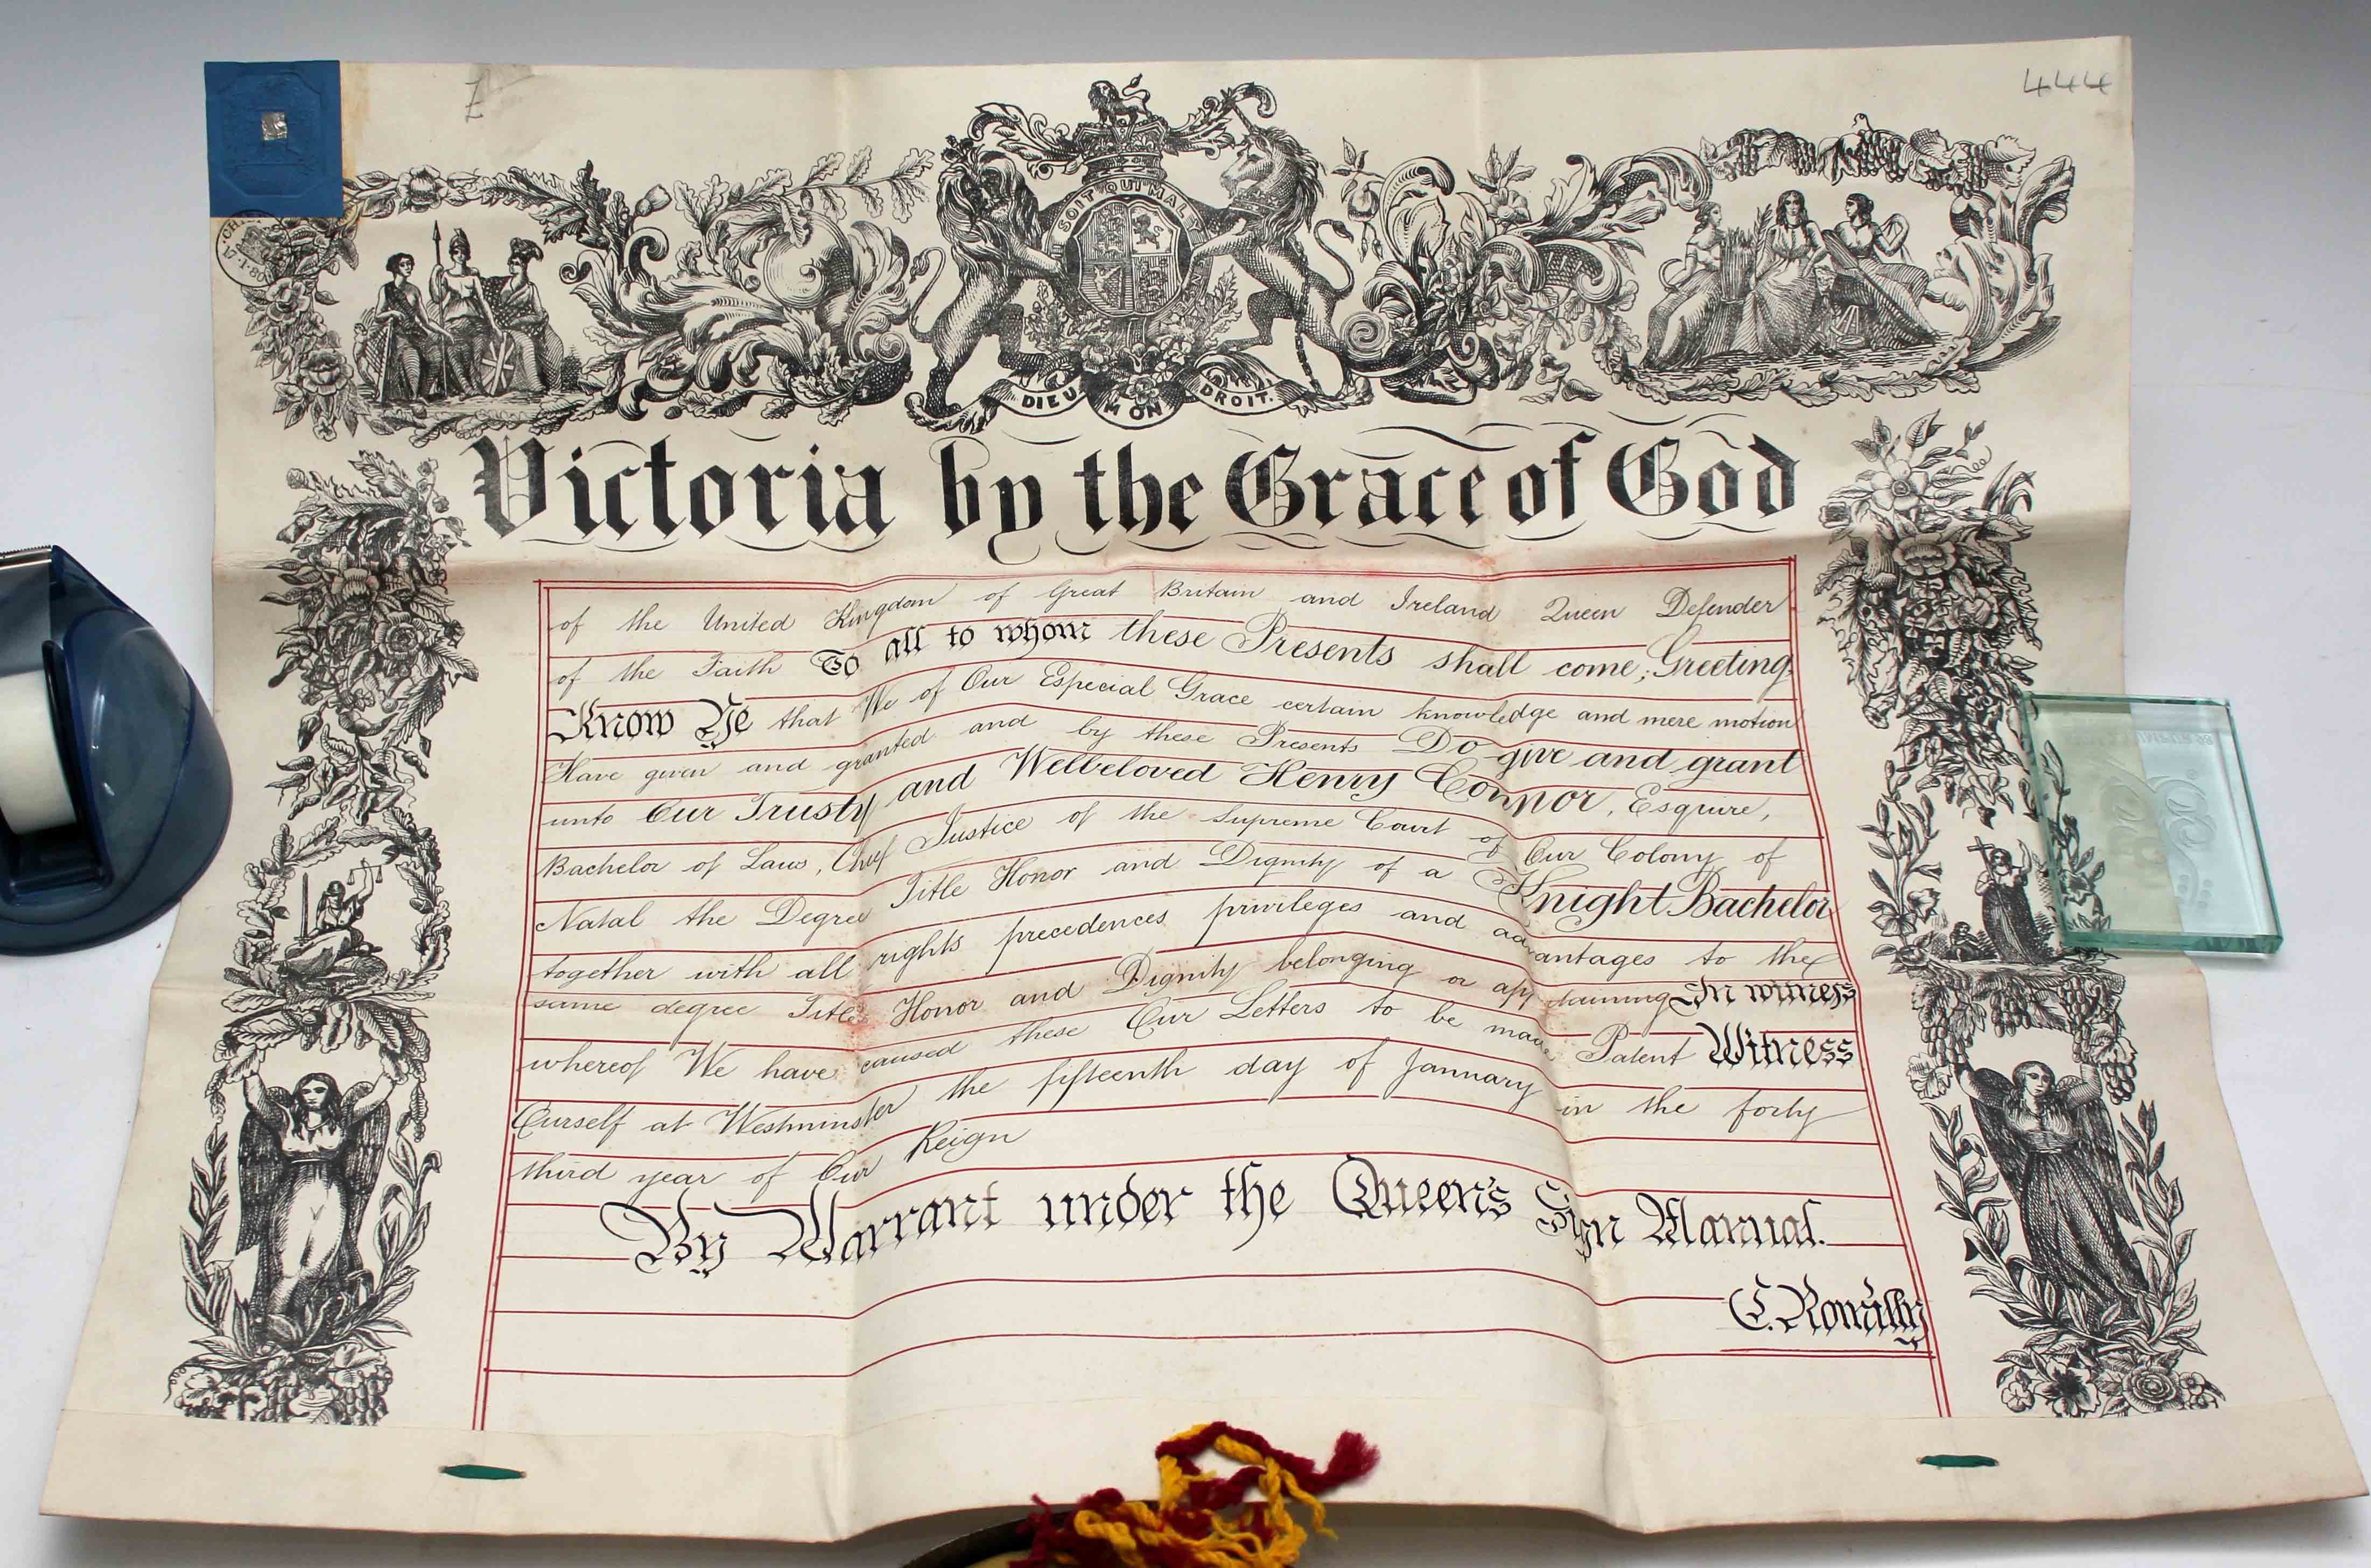 444
SOIT QUI MAL Y
DIEU MON DROIT.
17·1·80
Victoria by the Grace of God
of the United Kingdom of Great Britain and Ireland Queen Defender
of the Faith To all to whom these Presents shall come; Greeting
Know Ye that We of Our Especial Grace certain knowledge and mere motion
Have given and granted and by these Presents Do give and grant
unto Our Trusty and Welbeloved Henry Connor, Esquire,
Bachelor of Laws, Chief Justice of the Supreme Court of Our Colony of
Natal the Degree Title Honor and Dignity of a Knight Bachelor
together with all rights precedences privileges and advantages to the
same degree Title Honor and Dignity belonging or appertaining In witness
whereof We have caused these Our Letters to be made Patent Witness
Ourself at Westminster the fifteenth day of January in the forty
third year of Our Reign
By Warrant under the Queen's Sign Manual.
C. Romilly